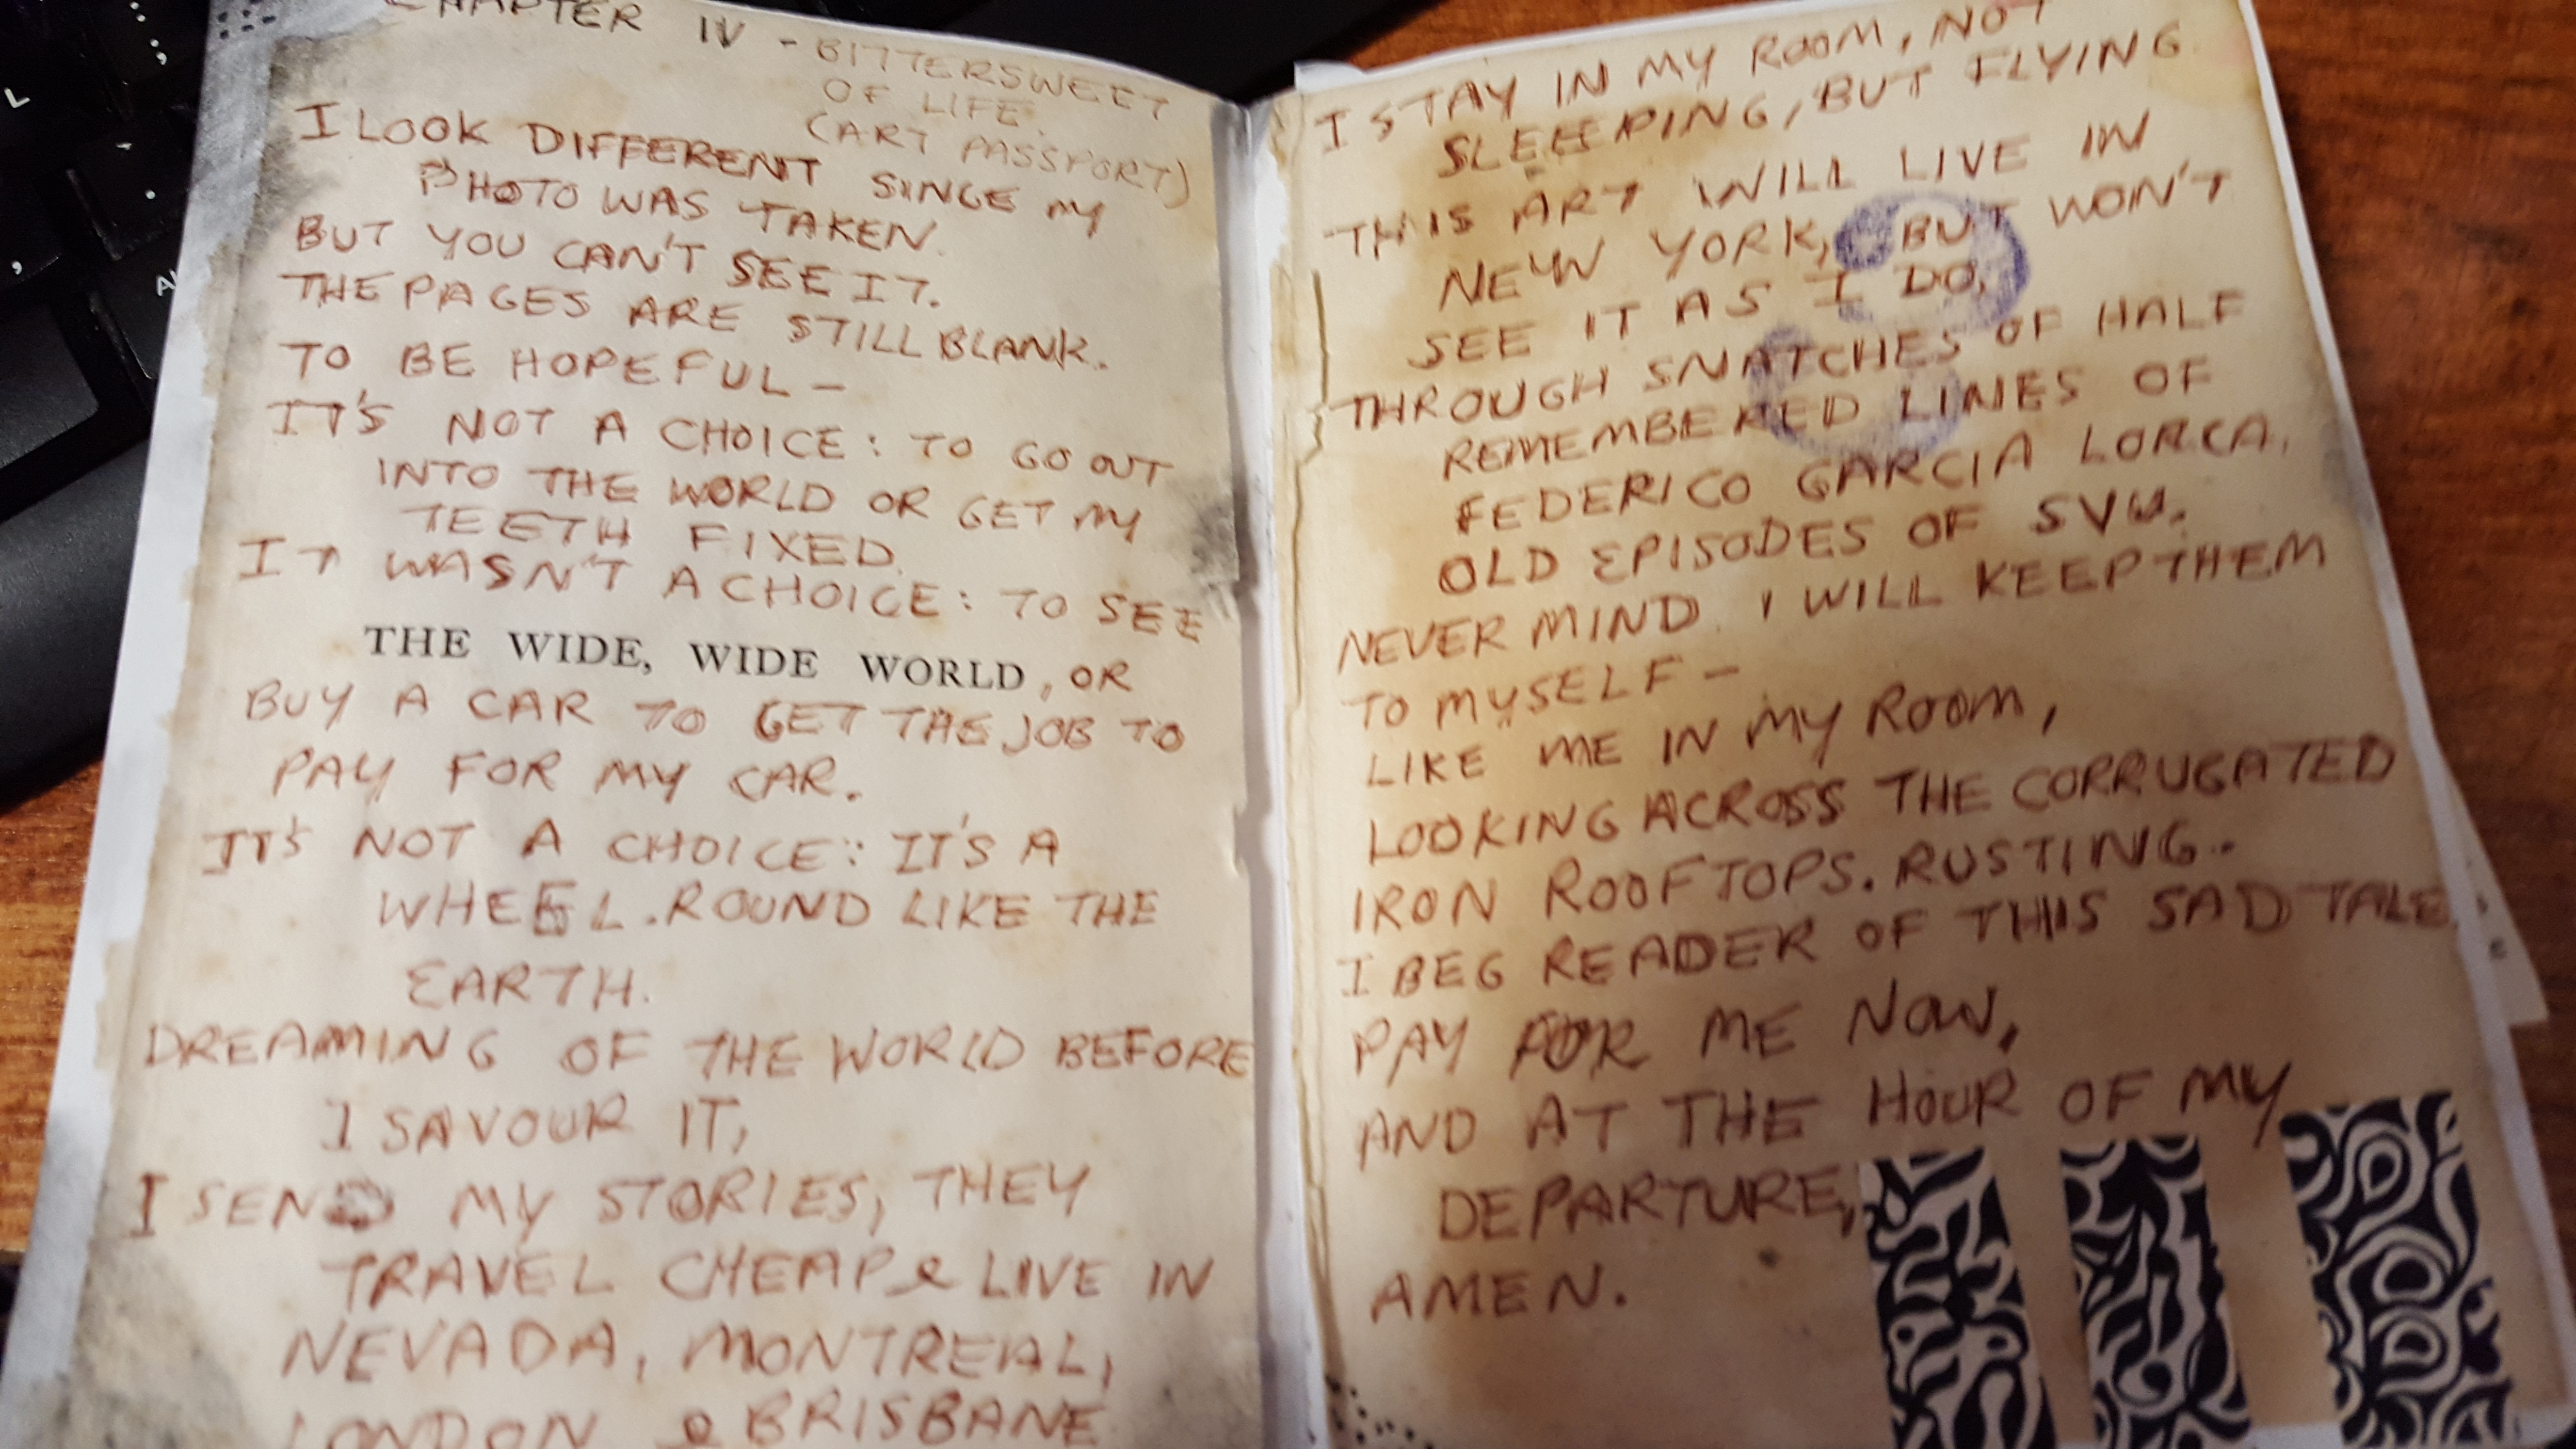 CHAPTER IV - BITTERSWEET
OF LIFE.
(ART PASSPORT)
I LOOK DIFFERENT SINCE MY
PHOTO WAS TAKEN.
BUT YOU CAN'T SEE IT.
THE PAGES ARE STILL BLANK.
TO BE HOPEFUL –
IT'S NOT A CHOICE: TO GO OUT
INTO THE WORLD OR GET MY
TEETH FIXED.
IT WASN'T A CHOICE: TO SEE
THE WIDE, WIDE WORLD, OR
BUY A CAR TO GET THE JOB TO
PAY FOR MY CAR.
IT'S NOT A CHOICE: IT'S A
WHEEL. ROUND LIKE THE
EARTH.
DREAMING OF THE WORLD BEFORE
I SAVOUR IT,
I SEND MY STORIES, THEY
TRAVEL CHEAP & LIVE IN
NEVADA, MONTREAL,
LONDON & BRISBANE
I STAY IN MY ROOM, NOT
SLEEPING, BUT FLYING
THIS ART WILL LIVE IN
NEW YORK, BUT WON'T
SEE IT AS I DO,
THROUGH SNATCHES OF HALF
REMEMBERED LINES OF
FEDERICO GARCIA LORCA,
OLD EPISODES OF SVU.
NEVER MIND. I WILL KEEP THEM
TO MYSELF –
LIKE ME IN MY ROOM,
LOOKING ACROSS THE CORRUGATED
IRON ROOFTOPS. RUSTING.
I BEG READER OF THIS SAD TALE
PAY FOR ME NOW,
AND AT THE HOUR OF MY
DEPARTURE,
AMEN.
L
;
,